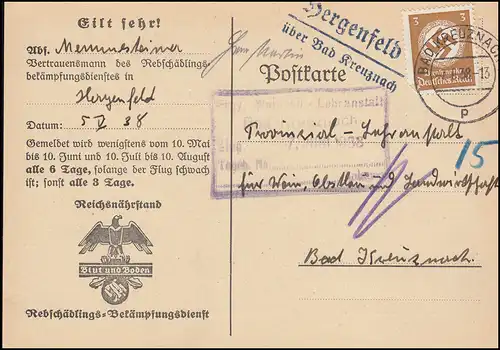 Eilt sehr!
Abs. Memmesheimer
Vertrauensmann des Rebschädlings-
bekämpfungsdienstes in
Hergenfeld
Datum: 5 V 38
Gemeldet wird wenigstens vom 10. Mai
bis 10. Juni und 10. Juli bis 10. August
alle 6 Tage, solange der Flug schwach
ist; sonst alle 3 Tage.
Reichsnährstand
Blut und Boden
Rebschädlings-Bekämpfungsdienst
Hergenfeld
über Bad Kreuznach
Postkarte
3 3
Deutsches Reich
BAD KREUZNACH
Lehranstalt
Provinzial-Lehranstalt
für Wein, Obstbau und Landwirtschaft
15
Bad Kreuznach